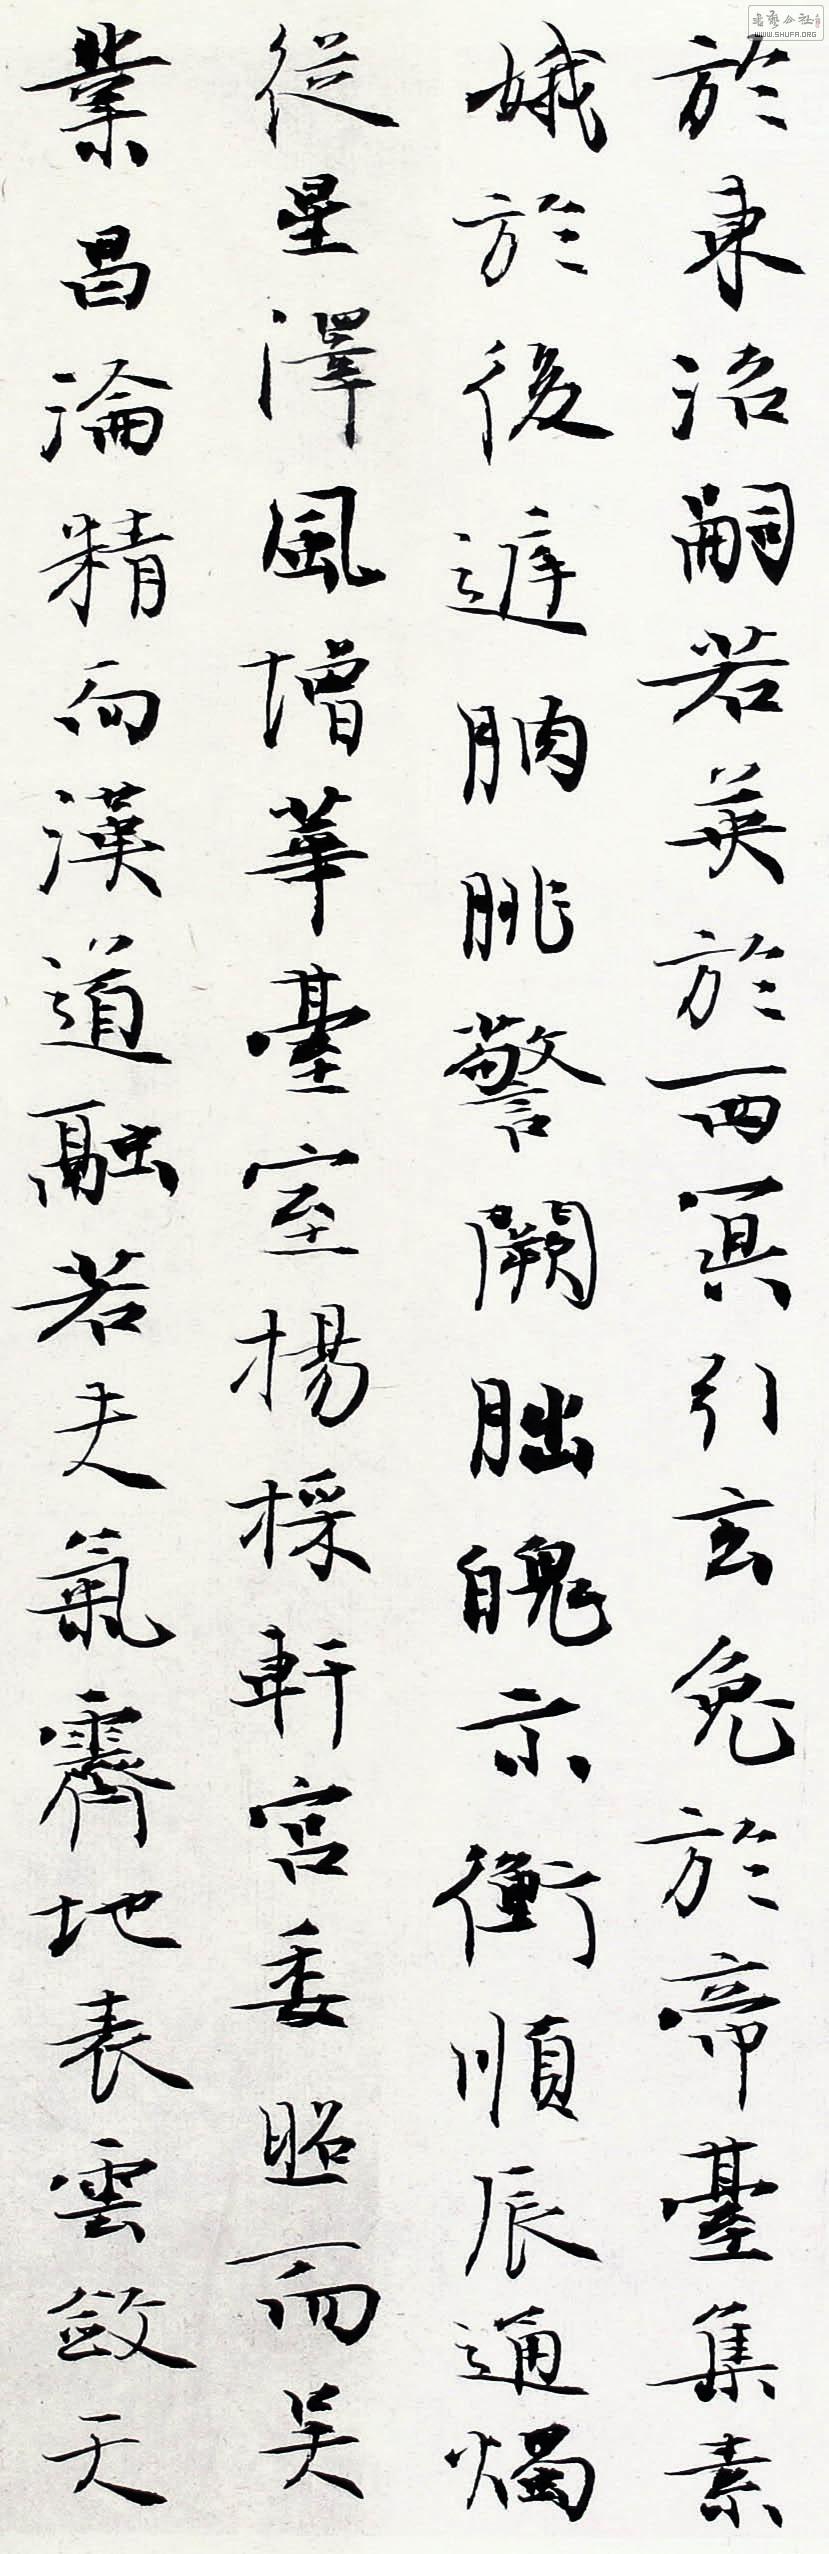 於東沼嗣若英於西冥引玄兔於帝臺集素
娥於後遅朒朓警闕朏魄示衝順辰通燭
從星澤風增華臺室揚採軒宮委照而吴
業昌淪精而漢道融若夫氣霽地表雲斂天
WWW.SHUFA.ORG